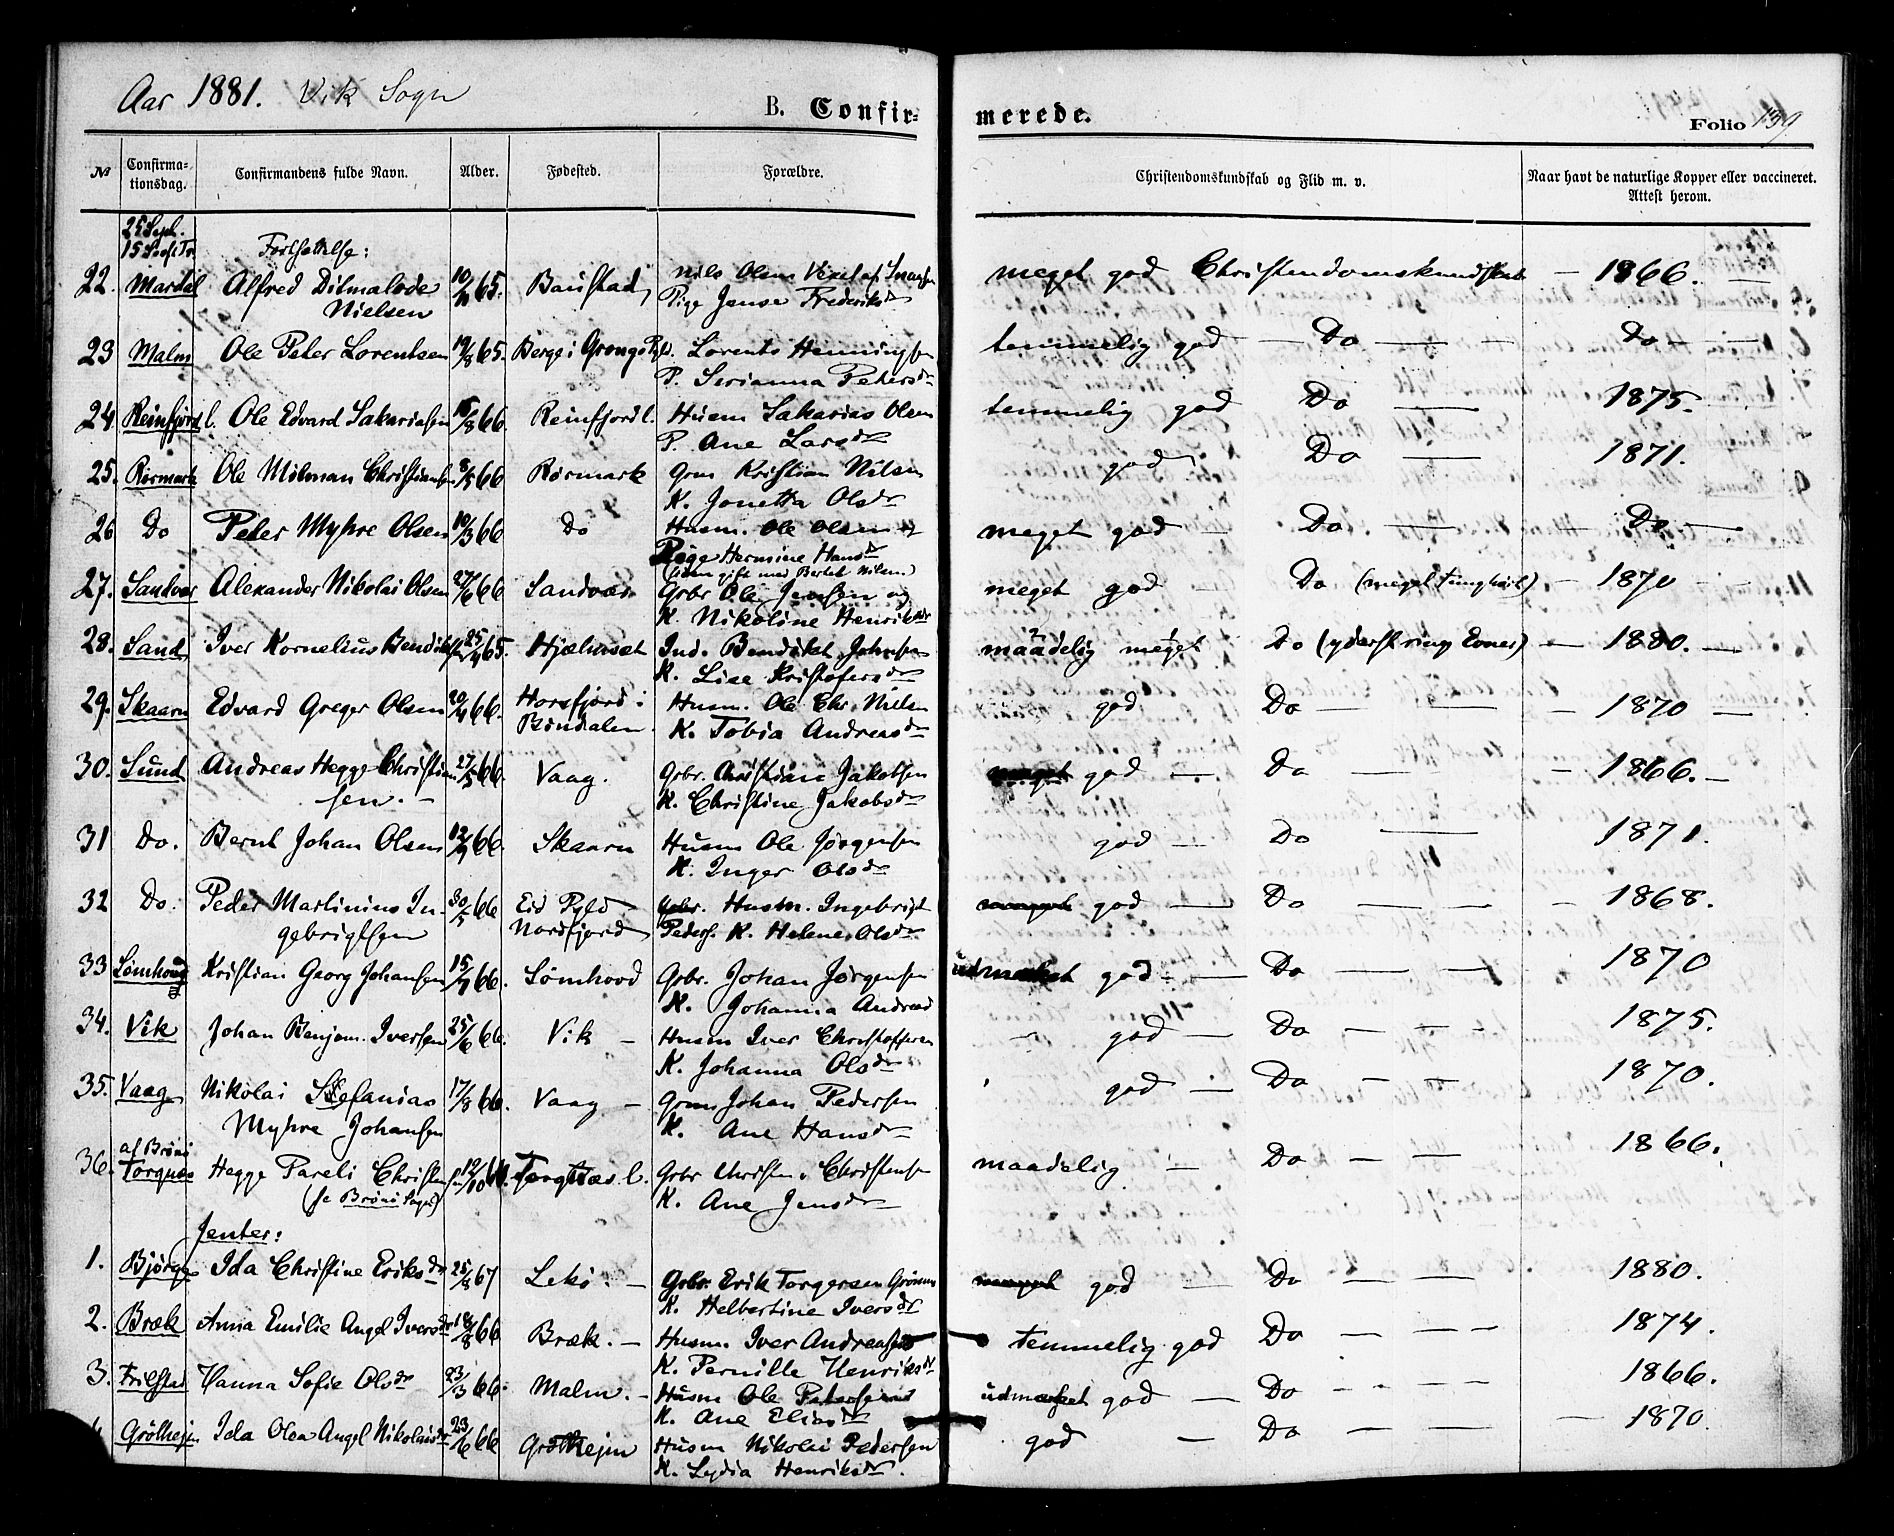 Aar 1881. Vik Sogn
B. Confir-
merede.
Folio 139
№ Confirma-
tionsdag. Confirmandens fulde Navn. Alder. Fødested. Forældre. Christendomskundskab og Flid m. v. Naar havt de naturlige Kopper eller vaccineret.
Attest herom.
25 Sept.
Fortsættelse:
22. Mardal Alfred Ditmalode 10/11 65. Baustad Nils Olsen meget god Christendomskundskab — 1866. —
Nielsen Pige Jense Frederiksdr
23 Malm Ole Peter Lorentsen 19/8 65. Berge i Grongs Pgld. Lorents Henningsen temmelig god — Do — Do —
P. Serianna Petersdr
24 Reinfjord l. Ole Edvard Sakariasen 15/8 66. Reinfjord l. Husm Sakarias Olsen temmelig god Do — 1875.
P. Ane Larsdr
25. Rørmark Ole Milman Christiansen 8/5 66 Rørmark Grm Kristian Nilsen god Do — 1871.
K. Jonetta Olsdr
26 Do Peter Myhre Olsen 10/3 66 Do Husm. Ole Olsen og meget god — Do — Do —
Pige Hermine Hansdr
(siden gift med Bertel Nilsen.)
27. Sandvær Alexander Nikolai Olsen 27/6 66 Sandvær Grbr Ole Jensen og meget god — Do (meget tunghørt) — 1870 —
K. Nikoline Henriksdr
28. Sand Iver Kornelius Bendiksen 25/4 65. Hjelmset Ind. Bendikt Johnsen maadelig meget Do (yderst ringe Evner) — 1880. —
K. Lise Kristofersdr
29. Skaarn Edvard Greger Olsen 20/4 66. Horsfjord i Husm. Ole Chr. Nilsen god Do — 1870 —
Bindalen K. Tobia Andreasdr
30. Sund Andreas Hegge Christian- 27/5 66. Vaag. Grbr. Christian Jakobsen meget god — Do — 1866. —
sen. — K. Christine Jakobsdr
31 Do. Bernt Johan Olsen 12/9 66. Skaarn Husm Ole Jørgensen god — Do — 1871.
K. Inger Olsdr
32 Do. Peder Martinius In- 30/5 66 Eid Pgld Grbr. Husm. Ingebrigt meget god — Do — 1868.
gebrigtsen Nordfjord Peders. K. Helene Olsdr
33 Sømhoug Kristian Georg Johansen 15/7 66. Sømhovd Grbr. Johan Jørgensen udmærket god — Do — 1870
K. Johanna Andreasd
34. Vik Johan Benjam. Iversen 25/6 66. Vik — Husm Iver Christoffersen god — Do — 1875.
K. Johanna Olsdr
35. Vaag Nikolai Stefanias 17/8 66. Vaag — Grm Johan Pedersen god — Do — 1870.
Myhre Johansen K. Ane Hansdr
af Brønø
36. Torgnæs Hegge Pareli Christensen 12/10 Torgnæs l. Grbr Christen Christensen maadelig — Do — 1866.
(se Brønø Sogn) K. Ane Jensdr
Jenter:
1. Bjørge Ida Christine Eriksdr 25/8 67 Lekø: — Grbr. Erik Torgersen meget god — Do — 1880.
K. Helbertine Iversdr
2. Bræk Anna Emilie Angel Iversdr 18/8 66 Bræk. — Husm. Iver Andreassen temmelig god Do — 1874.
K. Pernille Henriksdr
3. Frilstad Hanna Sofie Olsdr 23/3 66. Malm. — Husm Ole Petersen udmærket god — Do — 1866.
K. Ane Eliasdr
Grøtheim Ida Olea Angel Nikolaisdr 23/6 66 Grøtheim Husm Nikolai Pedersen god — Do — 1870.
K. Lydia Henriksdr.